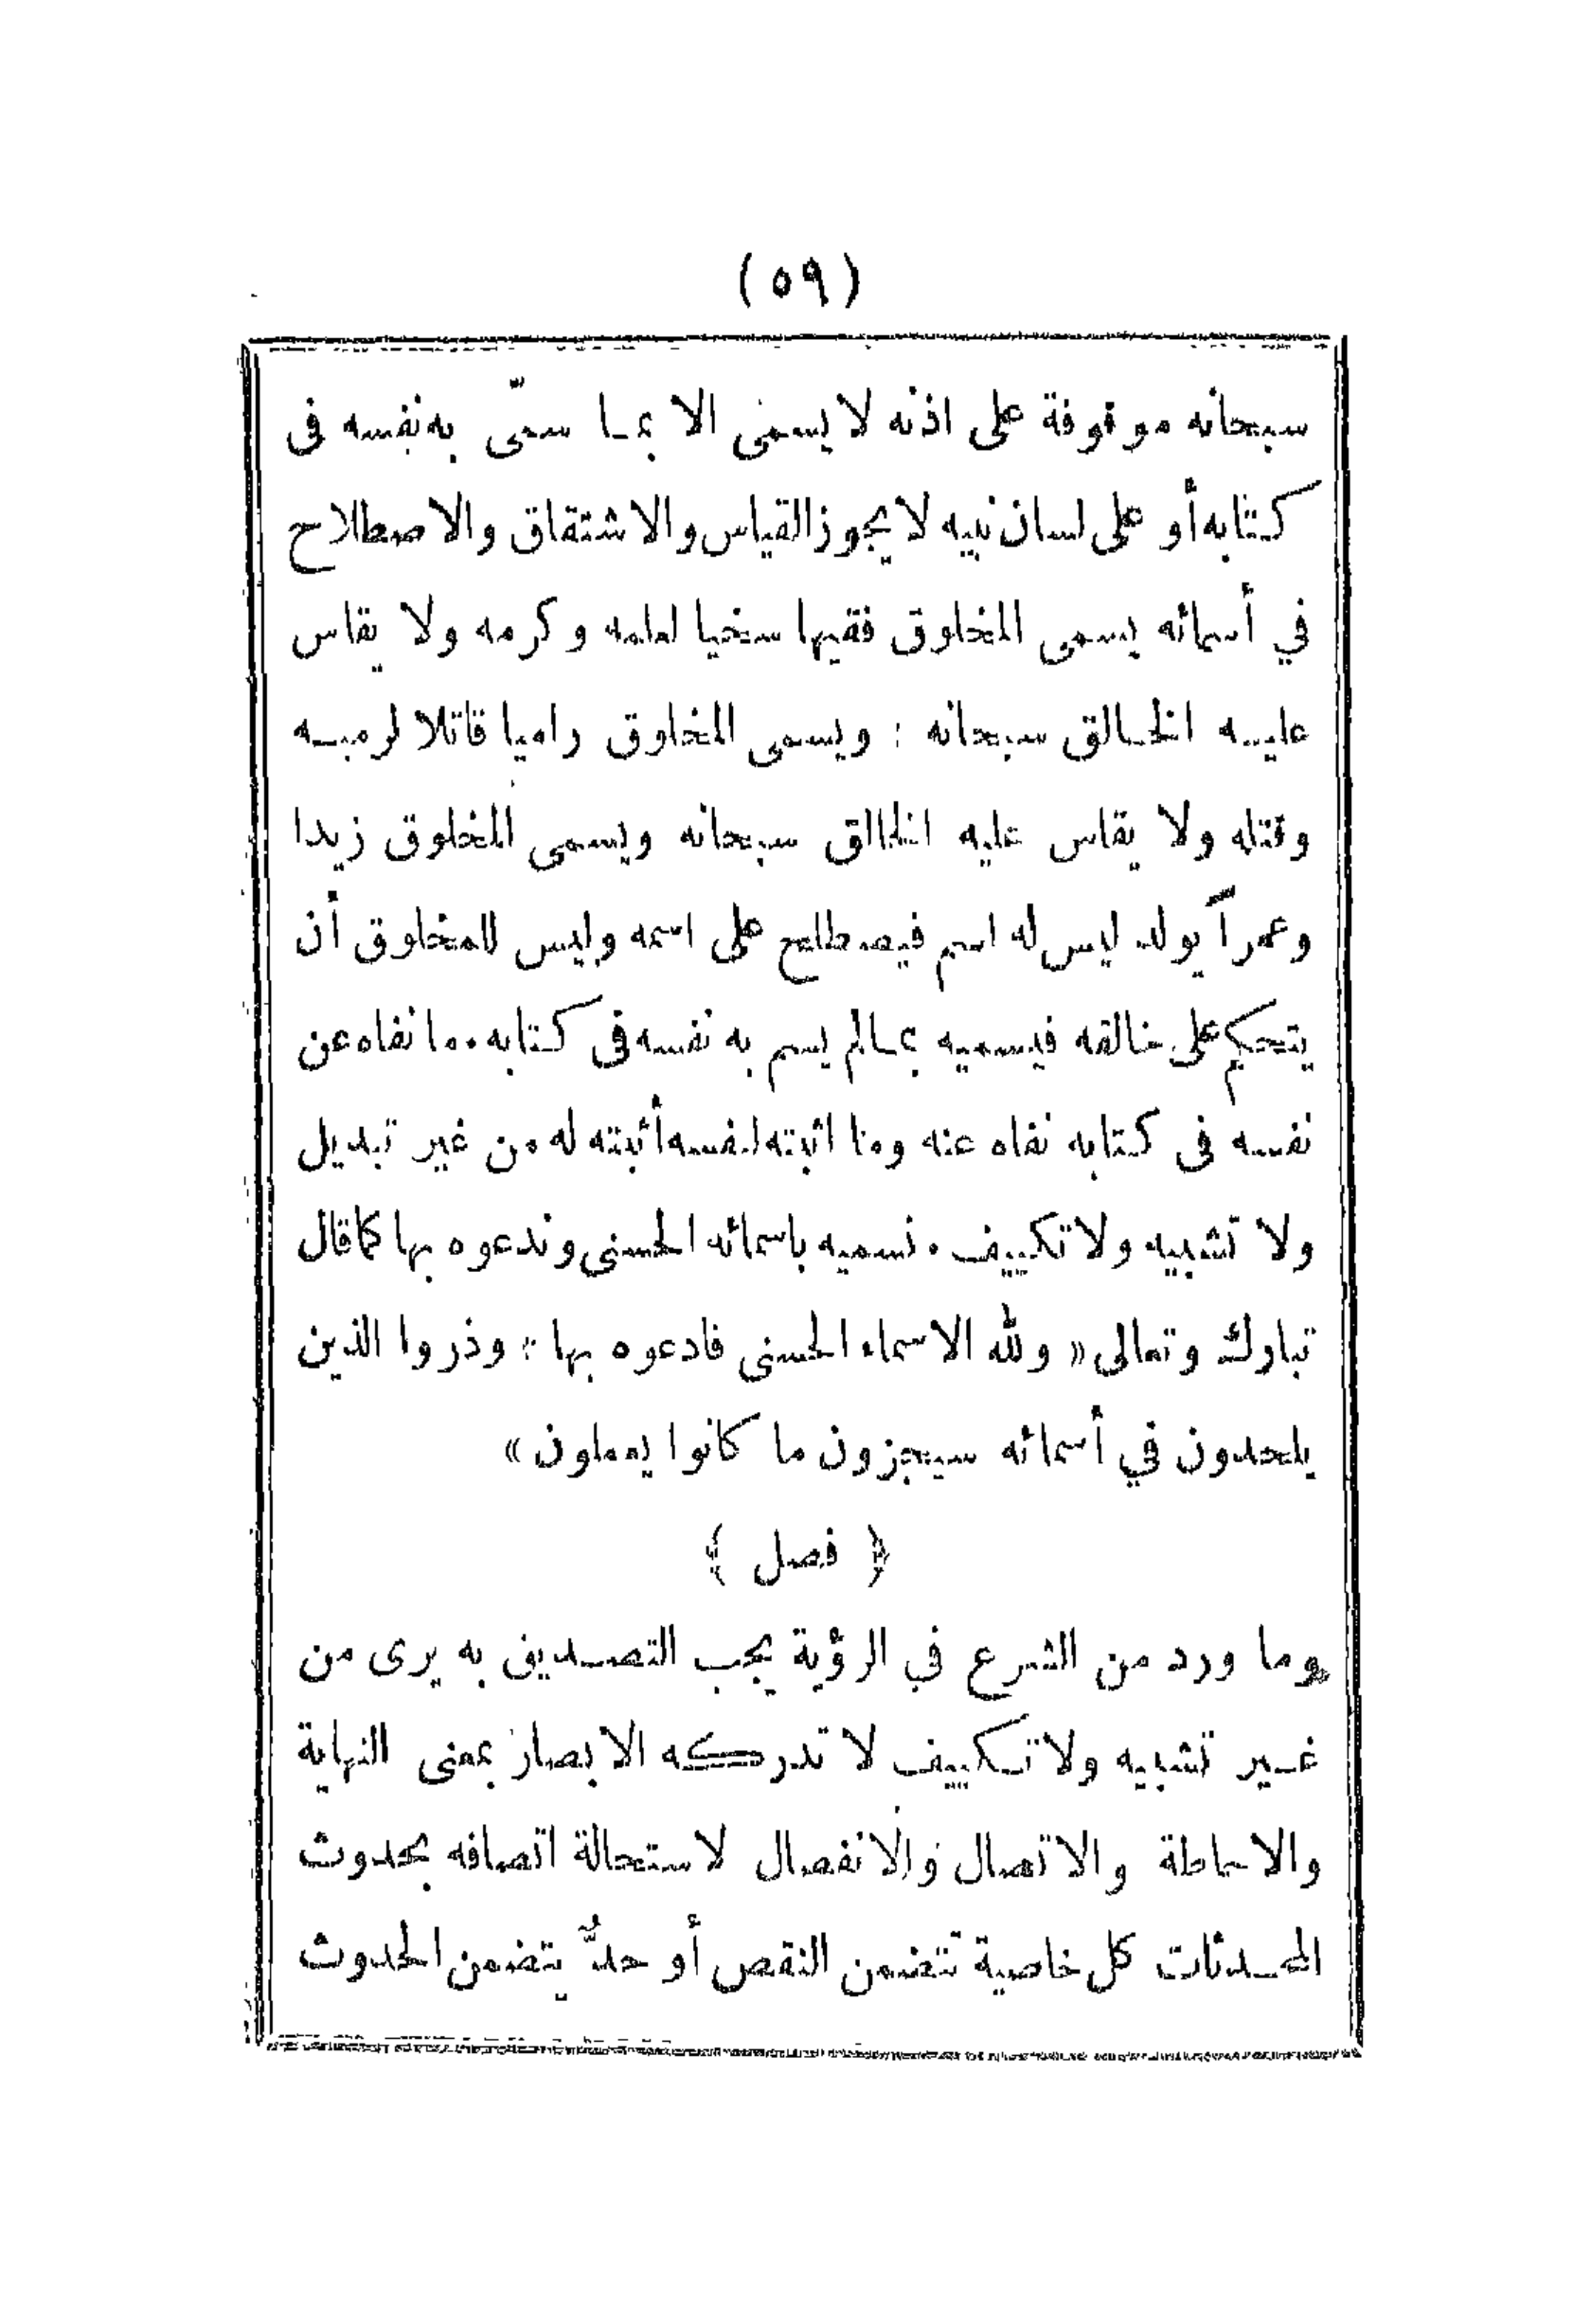 (٥٩)
سبحانه موقوفة على اذنه لا يسمى الا بما سمّى به نفسه فى
كتابه أو على لسان نبيه لا يجوز القياس والاشتقاق والاصطلاح
في أسمائه يسمى المخلوق فقيها سخيا لعلمه وكرمه ولا يقاس
عليه الخالق سبحانه : ويسمى المخلوق راميا قاتلا لرميه
وقتله ولا يقاس عليه الخالق سبحانه ويسمى المخلوق زيدا
وعمراً يولد ليس له اسم فيصطلح على اسمه وليس للمخلوق أن
يتحكم على خالقه فيسميه بما لم يسم به نفسه فى كتابه . ما نفاه عن
نفسه فى كتابه نفاه عنه وما اثبته لنفسه أثبته له من غير تبديل
ولا تشبيه ولا تكييف . نسميه باسمائه الحسنى وندعوه بها كما قال
تبارك وتعالى « ولله الاسماء الحسنى فادعوه بها : وذروا الذين
يلحدون في أسمائه سيجزون ما كانوا يعملون »
﴿ فصل ﴾
وما ورد من الشرع في الرؤية يجب التصديق به يرى من
غير تشبيه ولا تكييف لا تدركه الابصار بمعنى النهاية
والاحاطة والاتصال والانفصال لاستحالة اتصافه بحدوث
المحدثات كل خاصية تتضمن النقص أو حدٌّ يتضمن الحدوث